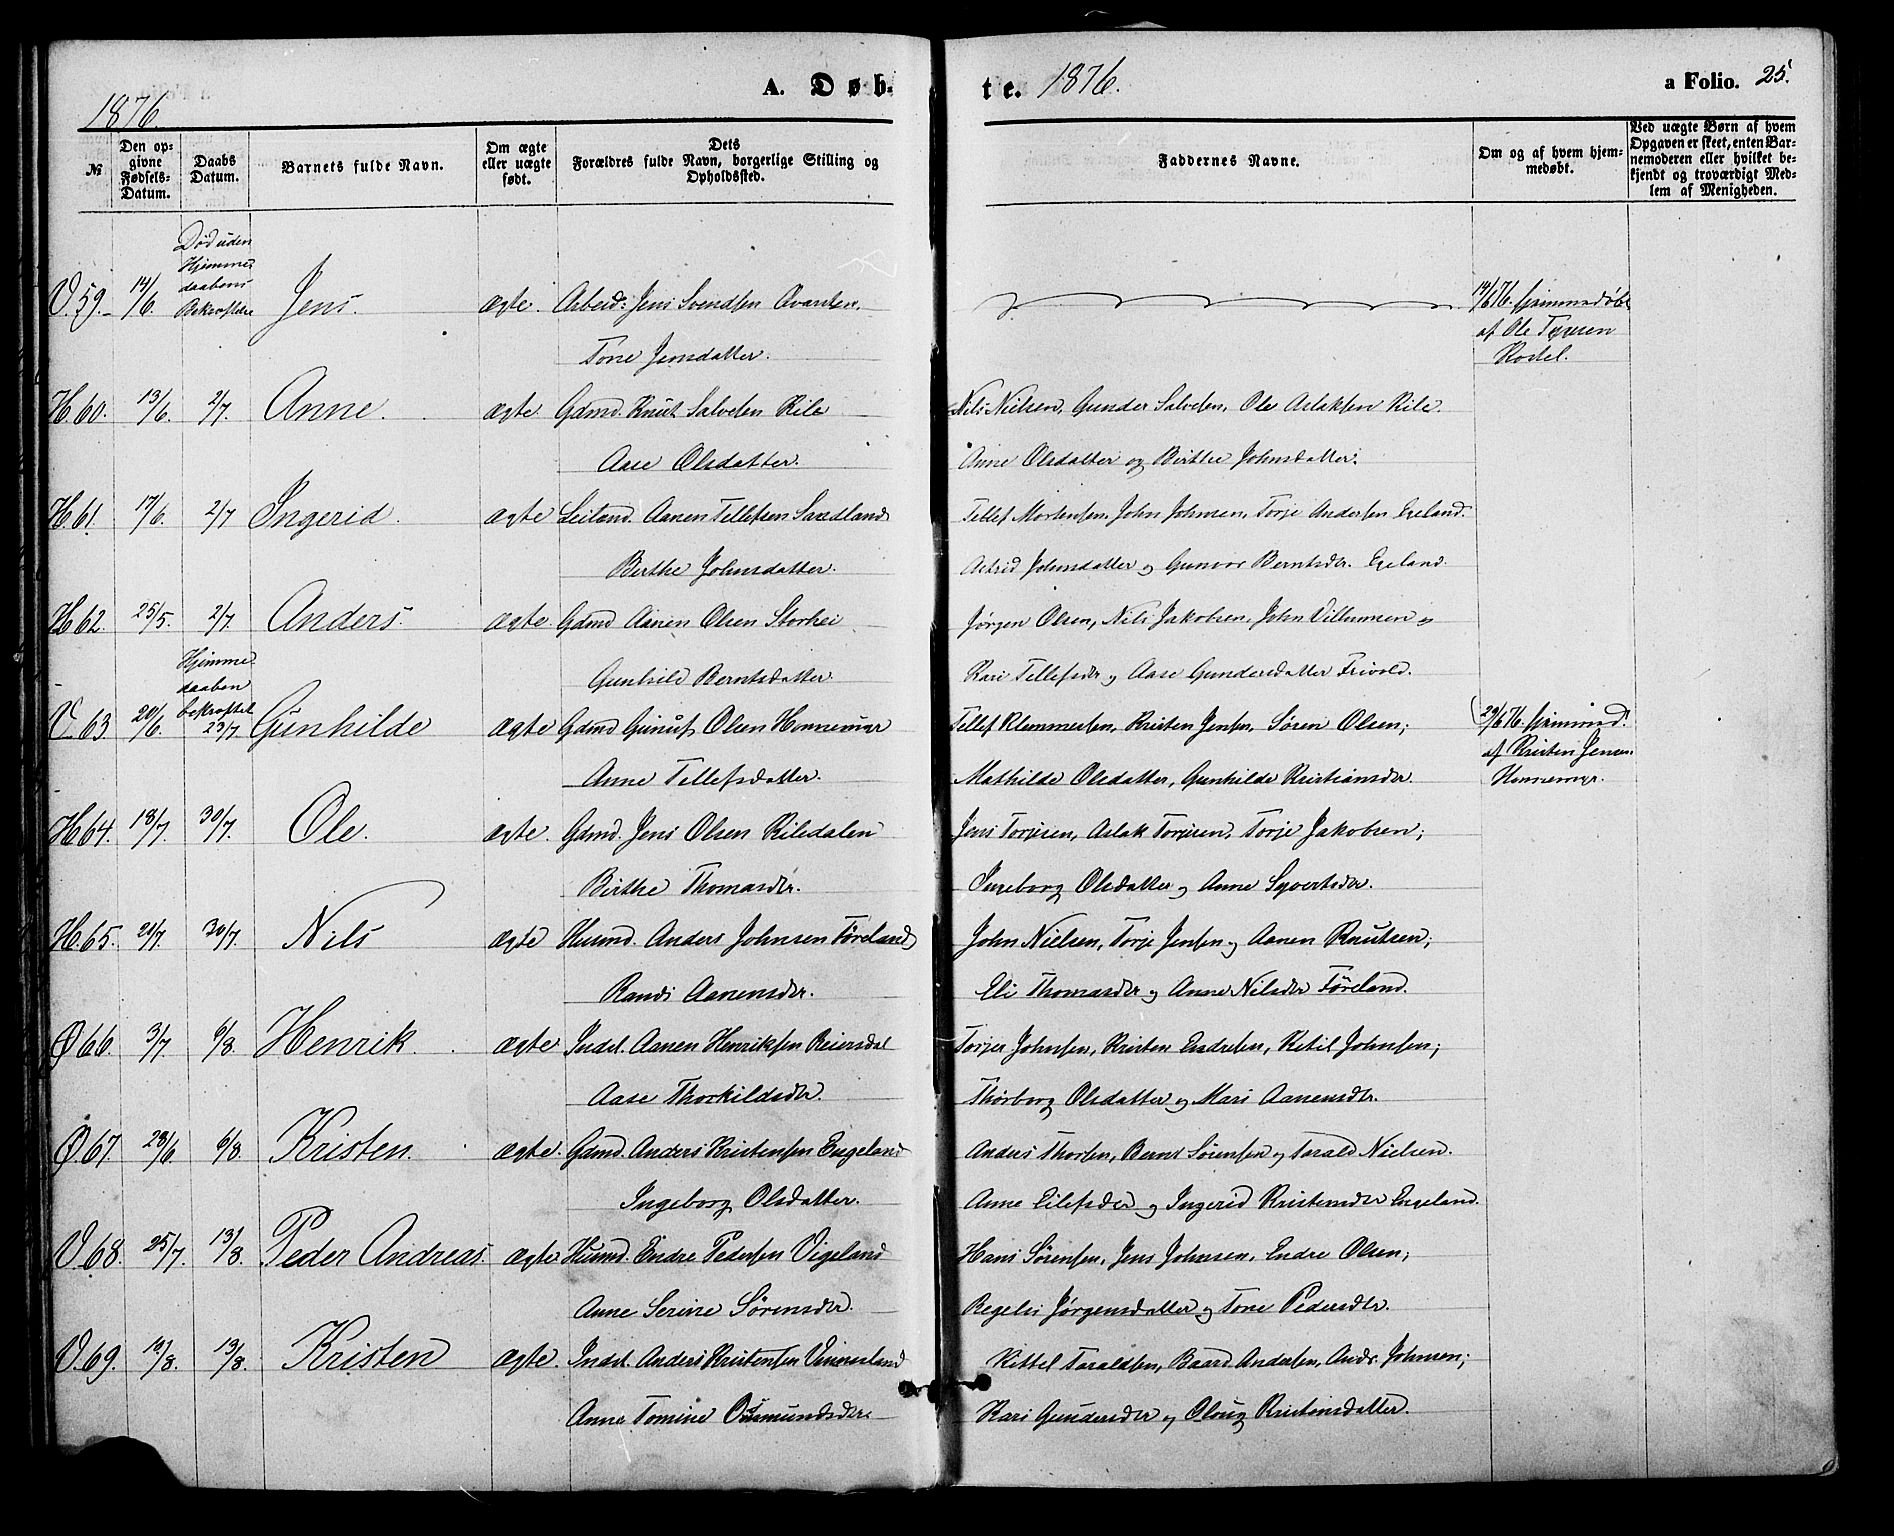 1876.
A. Døb-
te. 1876.
a Folio. 25.
№
Den opgivne Fødsels-Datum.
Daabs Datum.
Barnets fulde Navn.
Om ægte eller uægte født.
Dets Forældres fulde Navn, borgerlige Stilling og Opholdssted.
Faddernes Navne.
Om og af hvem hjemmedøbt.
Ved uægte Børn af hvem Opgaven er skeet, enten Barnemoderen eller hvilket bekjendt og troværdigt Medlem af Menigheden.
Død uden
Hjemme-
daabens
Bekræftelse
V. 59. 14/6. Jens. ægte. Arbeid: Jens Svendsen 14/6 76. hjemmedøbt
Tone Jensdatter. af Ole
H. 60. 13/6. 2/7. Anne. ægte. Gdmd. Knut Salvesen Kile Nils Nielsen, Gunder Salvesen, Ole Aslaksen Kile.
Aase Olsdatter. Anne Olsdatter og Birthe Johnsdatter.
H. 61. 17/6. 2/7 Ingerid. ægte Leiland. Aanen Tellefsen Sandland Tellef Mortensen, John Johnsen, Torje Andersen Egeland.
Birthe Johnsdatter. Astrid Johnsdatter og Gunvor Berntsdr. Egeland.
H. 62. 25/5. 2/7. Anders. ægte. Gdmd Aanen Olsen Storhei Jørgen Olsen, Nils Jakobsen, John Villumsen og
Gunhild Berntsdatter. Kari Tellefsdr og Aase Gundersdatter Frivold.
Hjemme-
daaben
bekræftet
V. 63 20/6. 23/7. Gunhilde ægte Gdmd Gunuf Olsen Honnemyr Tellef Klemmetsen, Kristen Jensen, Søren Olsen;
Anne Tellefsdatter. Mathilde Olsdatter, Gunhilde Kristiansdr.
af Kristen Jensen
Honnemyr.
H. 64. 18/7. 30/7. Ole. ægte. Gdmd. Jens Olsen Kiledalen Jens Torjesen, Aslak Torjesen, Torje Jakobsen;
Birthe Thomasdr. Ingeborg Olsdatter og Anne Syvertsdr.
H. 65. 21/7. 30/7. Nils ægte Husmd. Anders Johnsen Føreland John Nielsen, Torje Jensen og Aanen Knutsen;
Randi Aanensdr. Eli Thomasdr og Anne Nilsdr Føreland.
Ø 66. 3/7. 6/8. Henrik. ægte Indst. Aanen Henriksen Reiersdal Torjer Johnsen, Kristen Endresen, Ketil Johnsen;
Aase Thorkildsdr. Thorborg Olsdatter og Mari Aanensdr.
Ø 67. 28/6. 6/8. Kristen. ægte. Gdmd. Anders Kristensen Engeland Anders Thorsen, Bernt Sørensen og Tarald Nielsen.
Ingeborg Olsdatter. Anne Eilefsdr og Ingerid Kristensdr Engeland.
V. 68. 25/7. 13/8. Peder Andreas. ægte Husmd. Endre Pedersen Vigeland Hans Sørensen, Jens Johnsen, Endre Olsen;
Anne Serine Sørensdr. Regeli Jørgensdatter og Tone Pedersdr.
V. 69. 10/8. 13/8. Kristen ægte. Indst. Anders Kristensen Vennesland Kittel Taraldsen, Baard Andersen, Ands. Johnsen;
Anne Tomine Osmundsdr. Kari Gundersdr og Oloug Kristensdatter.